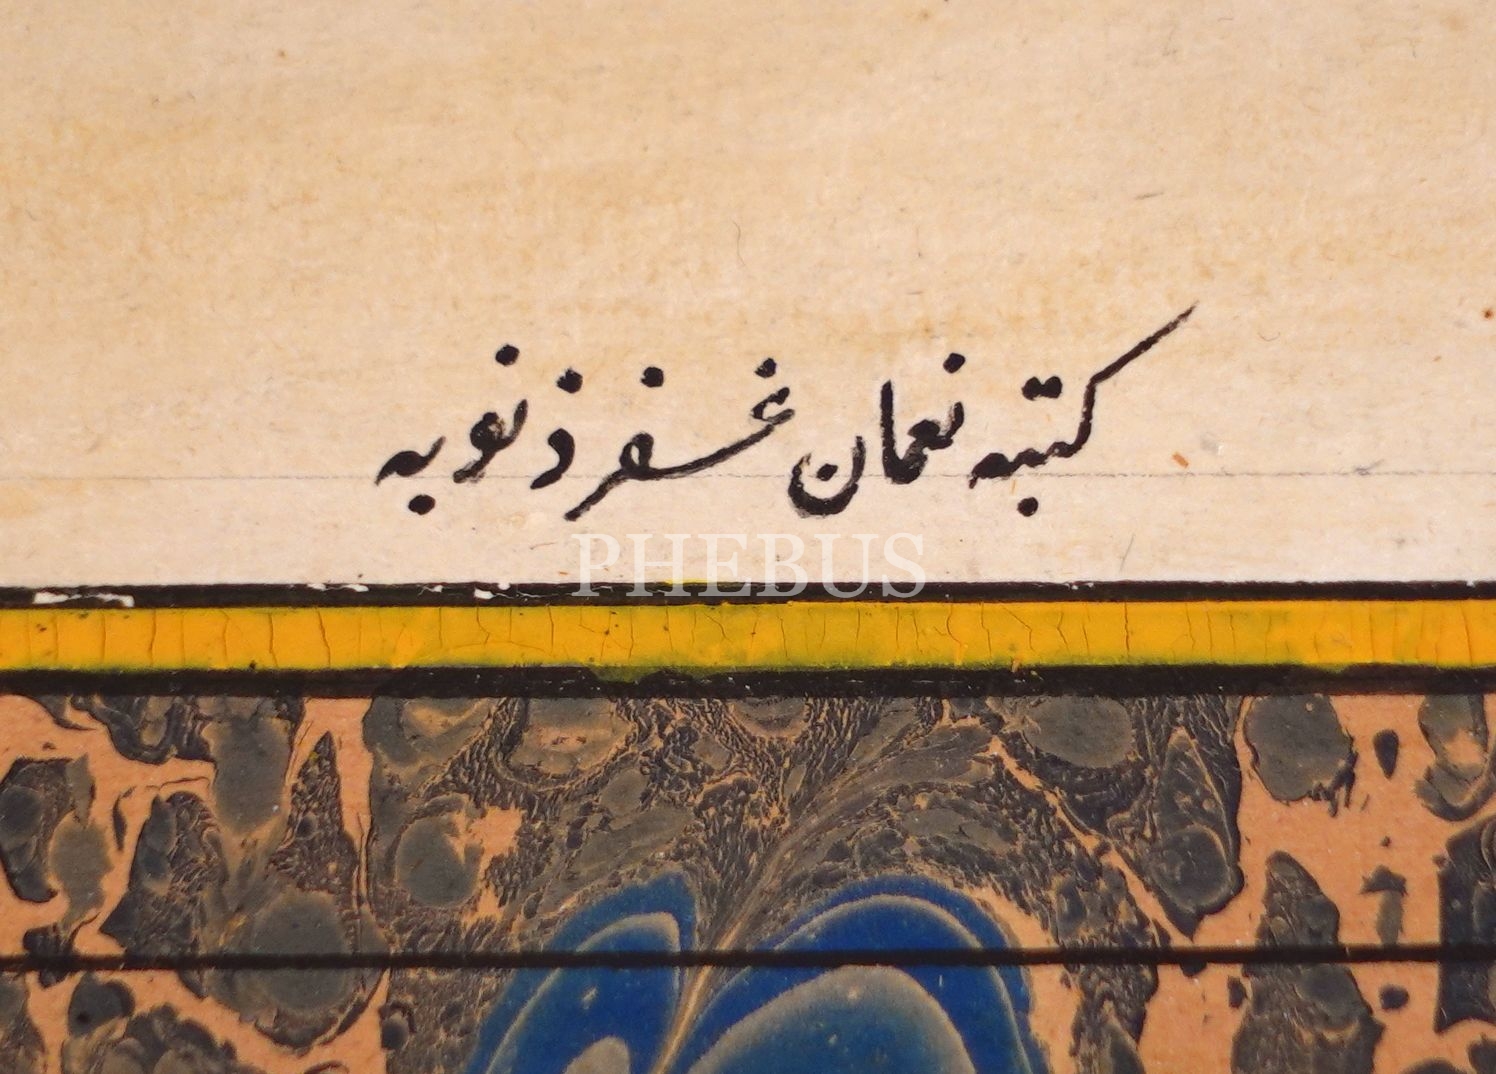 كتبه نعمان غفر ذنوبه
PHEBUS